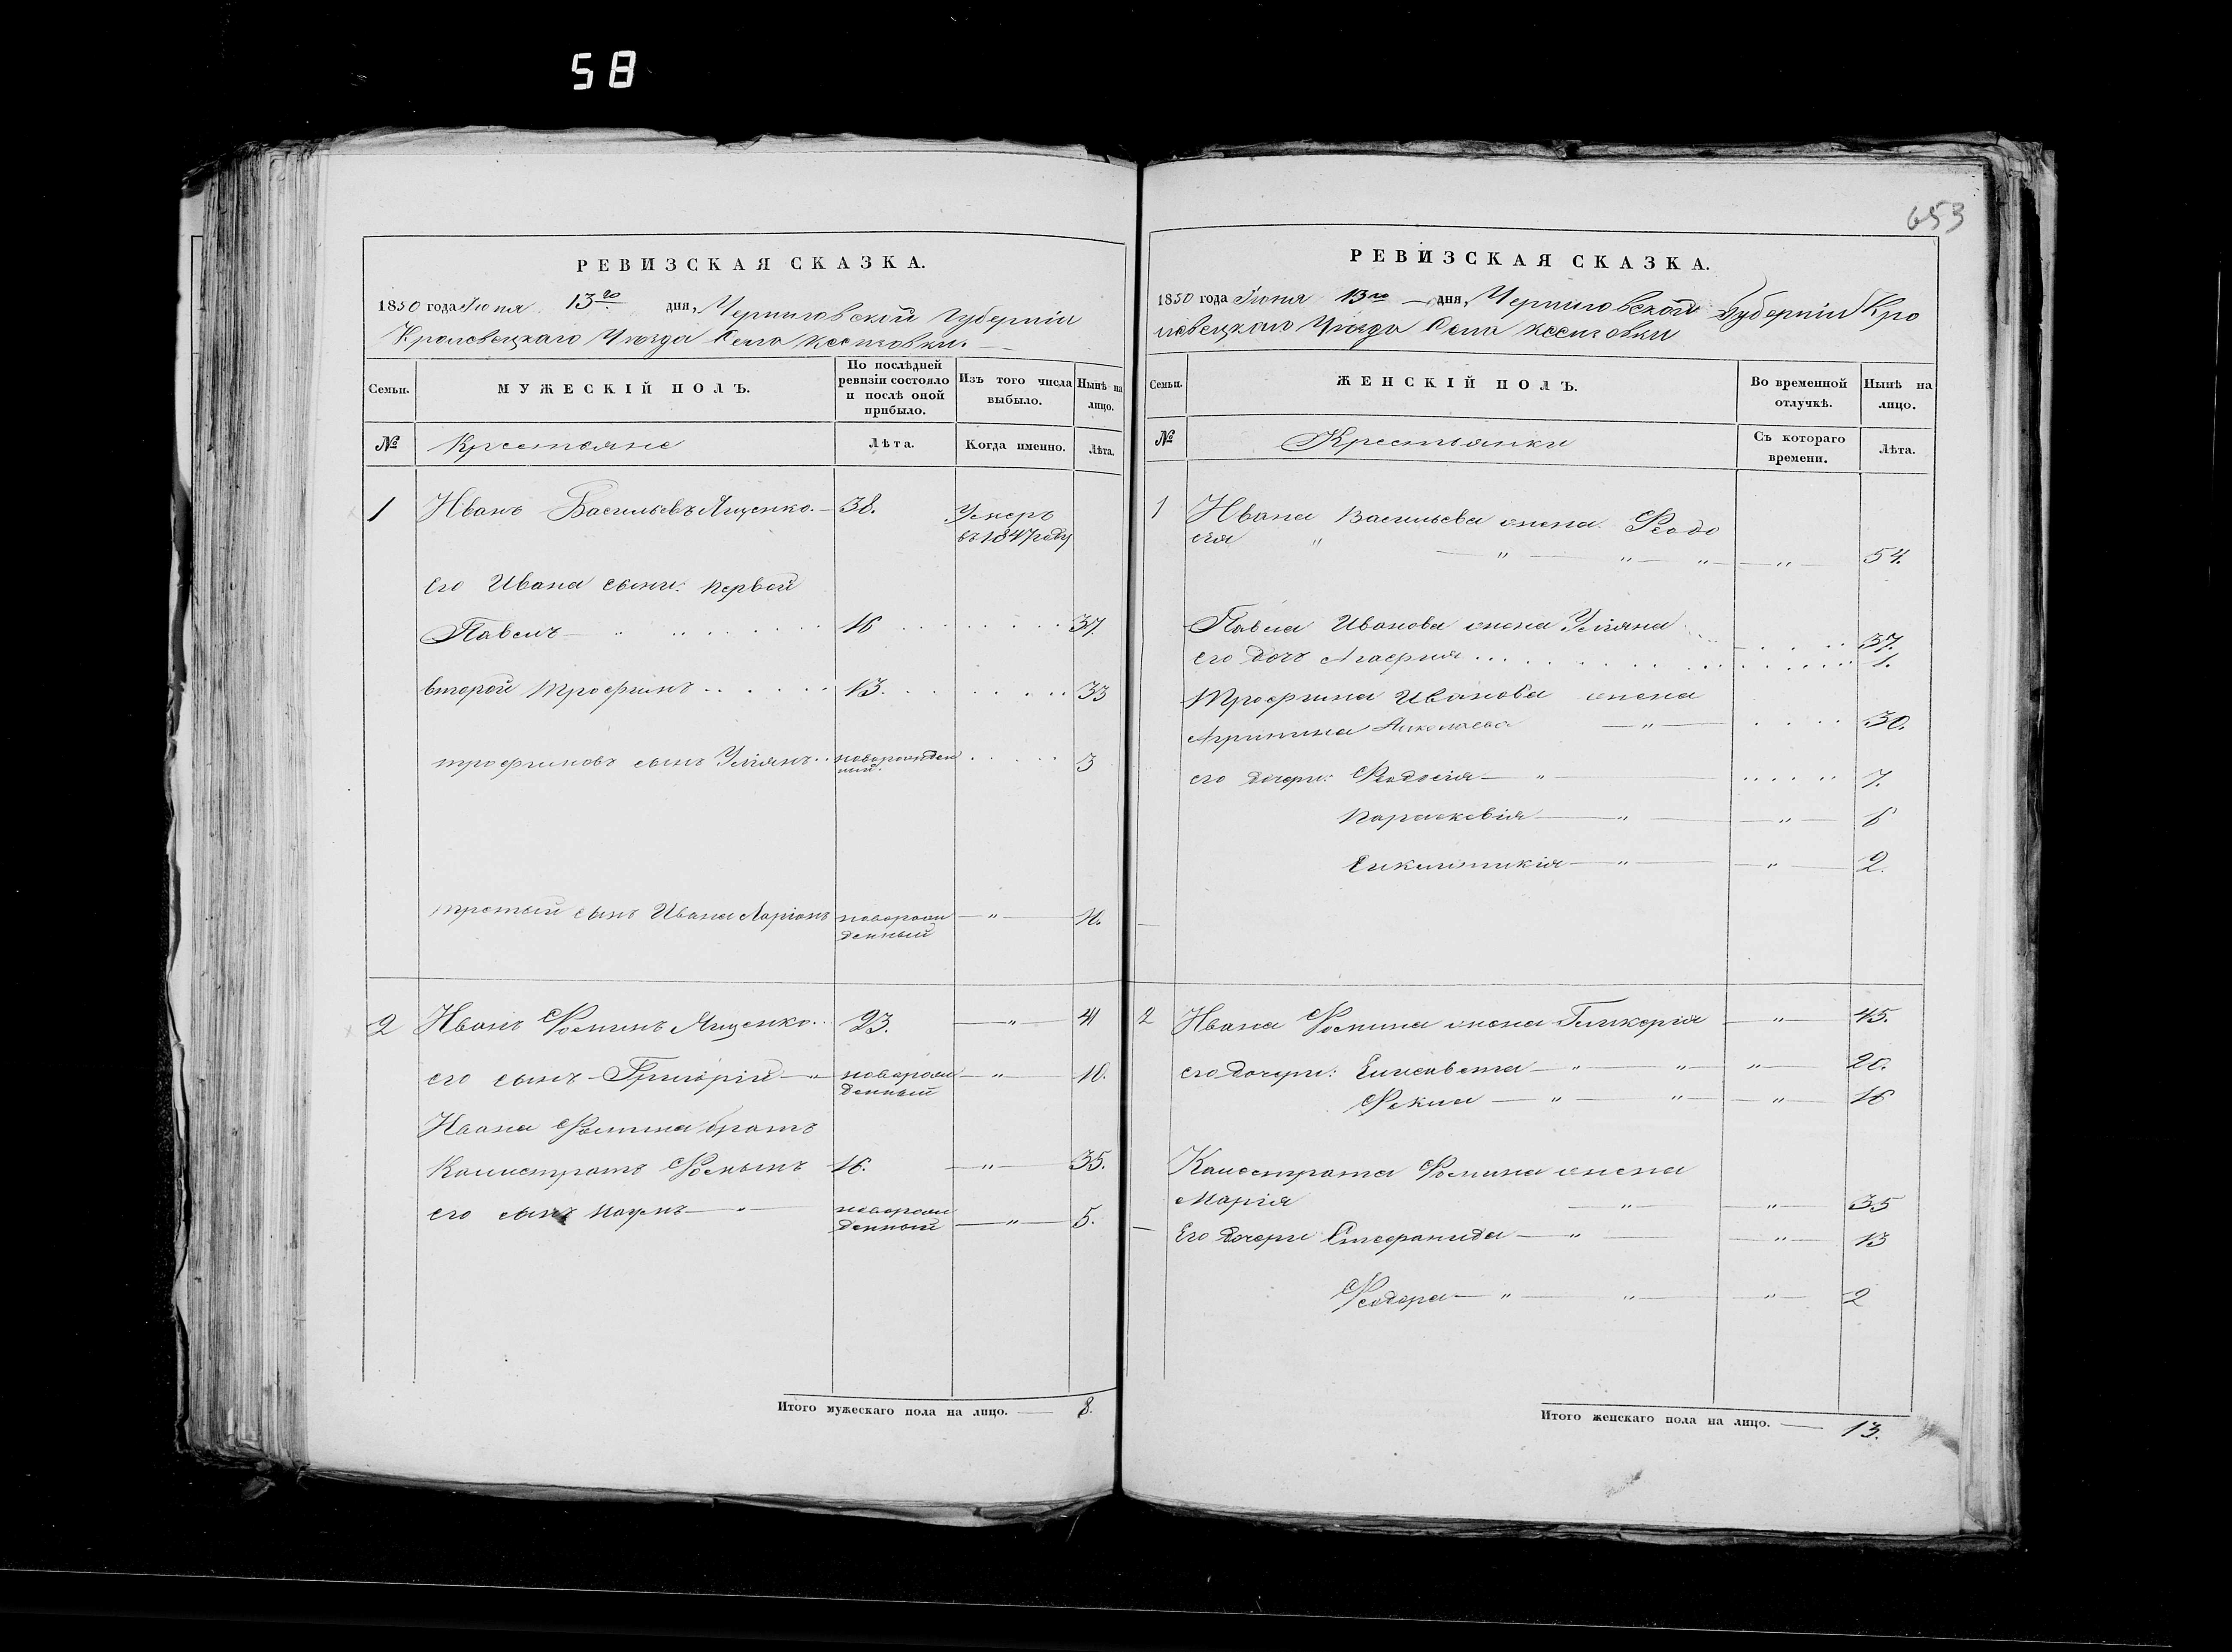 58
653
РЕВИЗСКАЯ СКАЗКА.
1850 года Июня 13го дня, Черниговской Губерніи
Кролевецкаго Уѣзда Села
Семьи.
МУЖЕСКІЙ ПОЛЪ.
По послѣдней ревизіи состояло и послѣ оной прибыло.
Изъ того числа выбыло.
Нынѣ на лицо.
№
Крестьяне
Лѣта.
Когда именно.
Лѣта.
1 Иванъ Васильевъ Ященко. 38. Умеръ въ 1847 году
Его Ивана сыны: первой
Павелъ 16 37.
второй Трофимъ 13. 33
трофимовъ сынъ Уліянъ новорожденный. 3
третый сынъ Ивана Ларіонъ новорожденный " 16.
2 Иванъ Фоминъ Ященко. 23. " 41
его сынъ Григорій " новорожденный " 10.
Ивана Фомина братъ
Калистратъ Фоминъ 16. " 35.
его сынъ Наумъ " новорожденный " 5.
Итого мужескаго пола на лицо. 8.
РЕВИЗСКАЯ СКАЗКА.
1850 года Июня 13го дня, Черниговской Губерніи Кро
левецкаго Уѣзда Села
Семьи.
ЖЕНСКІЙ ПОЛЪ.
Во временной отлучкѣ.
Нынѣ на лицо.
№
Крестьянки
Съ котораго времени.
Лѣта.
1 Ивана Васильева жена Феодо
сія " " " " " 54.
Павла Иванова жена Уліяна 37.
его дочь Агафия 1.
Трофима Иванова жена
Агрипина Николаева " 30.
его дочери: Феодосія " 7.
Парасковія " "
" " 2.
2 Ивана Фомина жена Гликерія " 45.
его дочери: Елисавета " " " 20.
Фекла " " " 16
Калистрата Фомина жена
Марія " " 35
Его дочери Стефанида " " 13
Феодора " " " 2
Итого женскаго пола на лицо. 13.